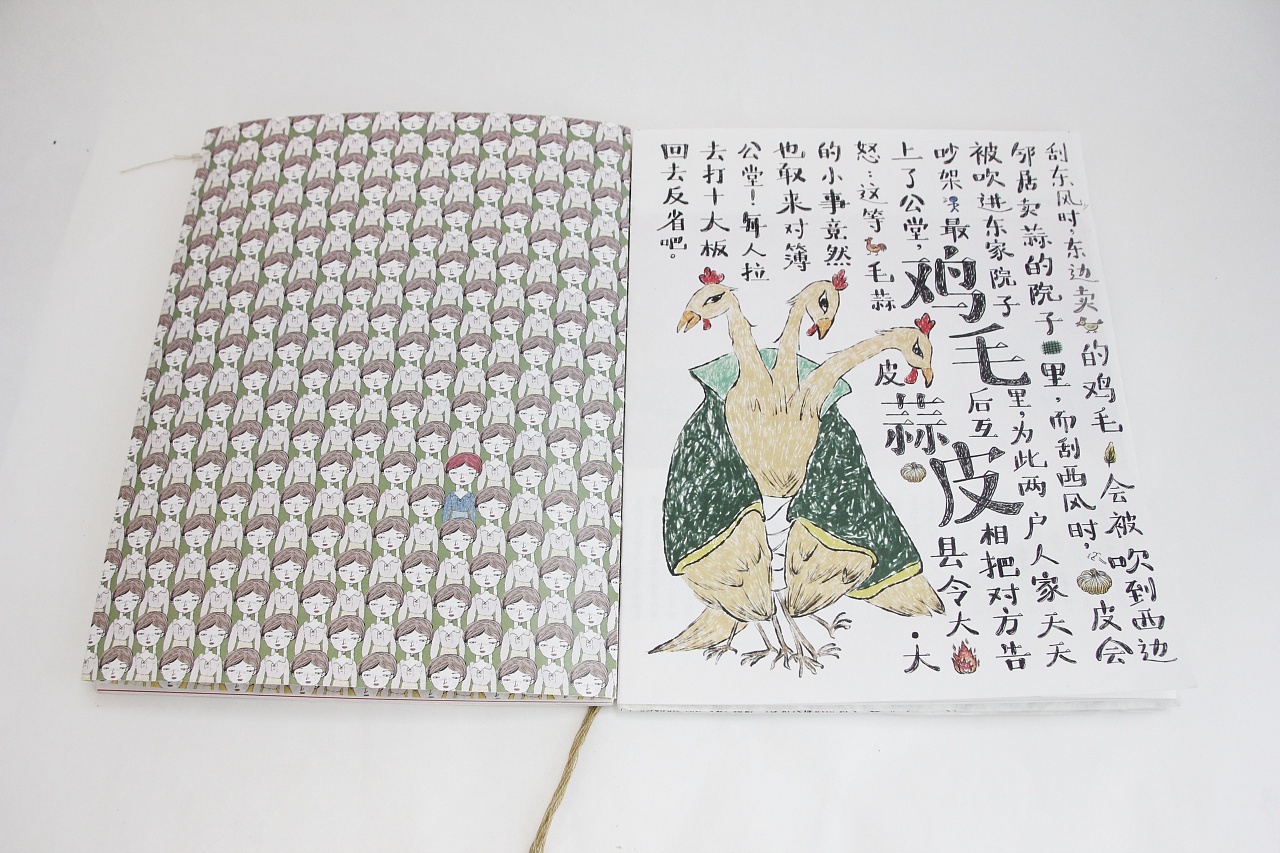 刮东风时,东边卖的鸡毛会被吹到西边
邻居卖蒜的院子里,而刮西风时,皮会
被吹进东家院子里,为此两户人家天天
吵架最后互相把对方告
上了公堂,县令大
鸡毛蒜皮
·大
怒:这等毛蒜皮
的小事竟然
也敢来对簿
公堂!每人拉
去打十大板
回去反省吧。